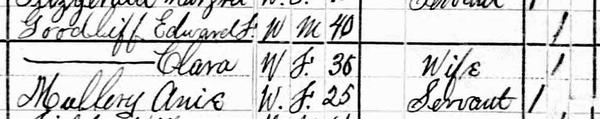 Fitzgerald Margret W. F. Servant
Goodliff Edward F. W M 40 1
——— Clara W F. 36 Wife 1
Mullery Anie W. F. 25 Servant 1